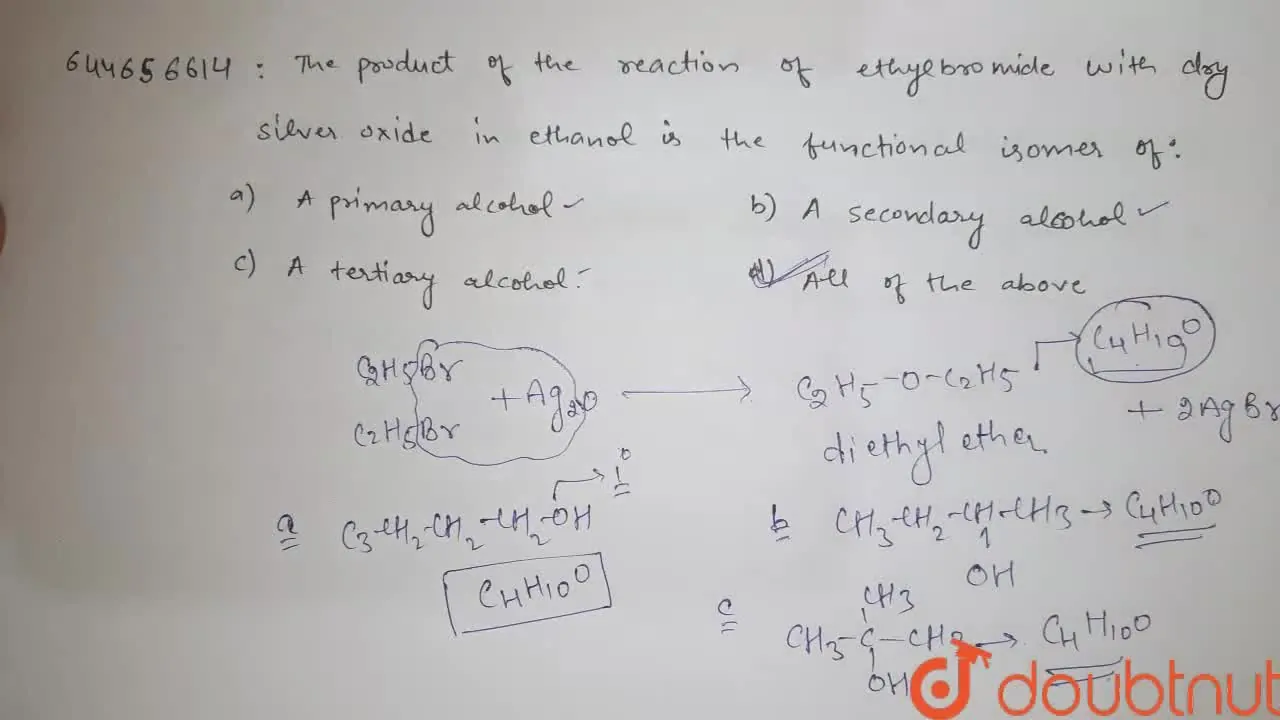 644656614 : The product of the reaction of ethylbromide with dry
silver oxide in ethanol is the functional isomer of:
a) A primary alcohol ✓
b) A secondary alcohol ✓
c) A tertiary alcohol
d) All of the above
C2H5Br
C2H5Br
+ Ag2O → C2H5-O-C2H5 → C4H10O
+ 2AgBr
diethyl ether
a C3-CH2-CH2-CH2-OH → 1°
C4H10O
b CH3-CH2-CH-CH3 → C4H10O
OH
c CH3
CH3-C-CH3 → C4H10O
OH
doubtnut